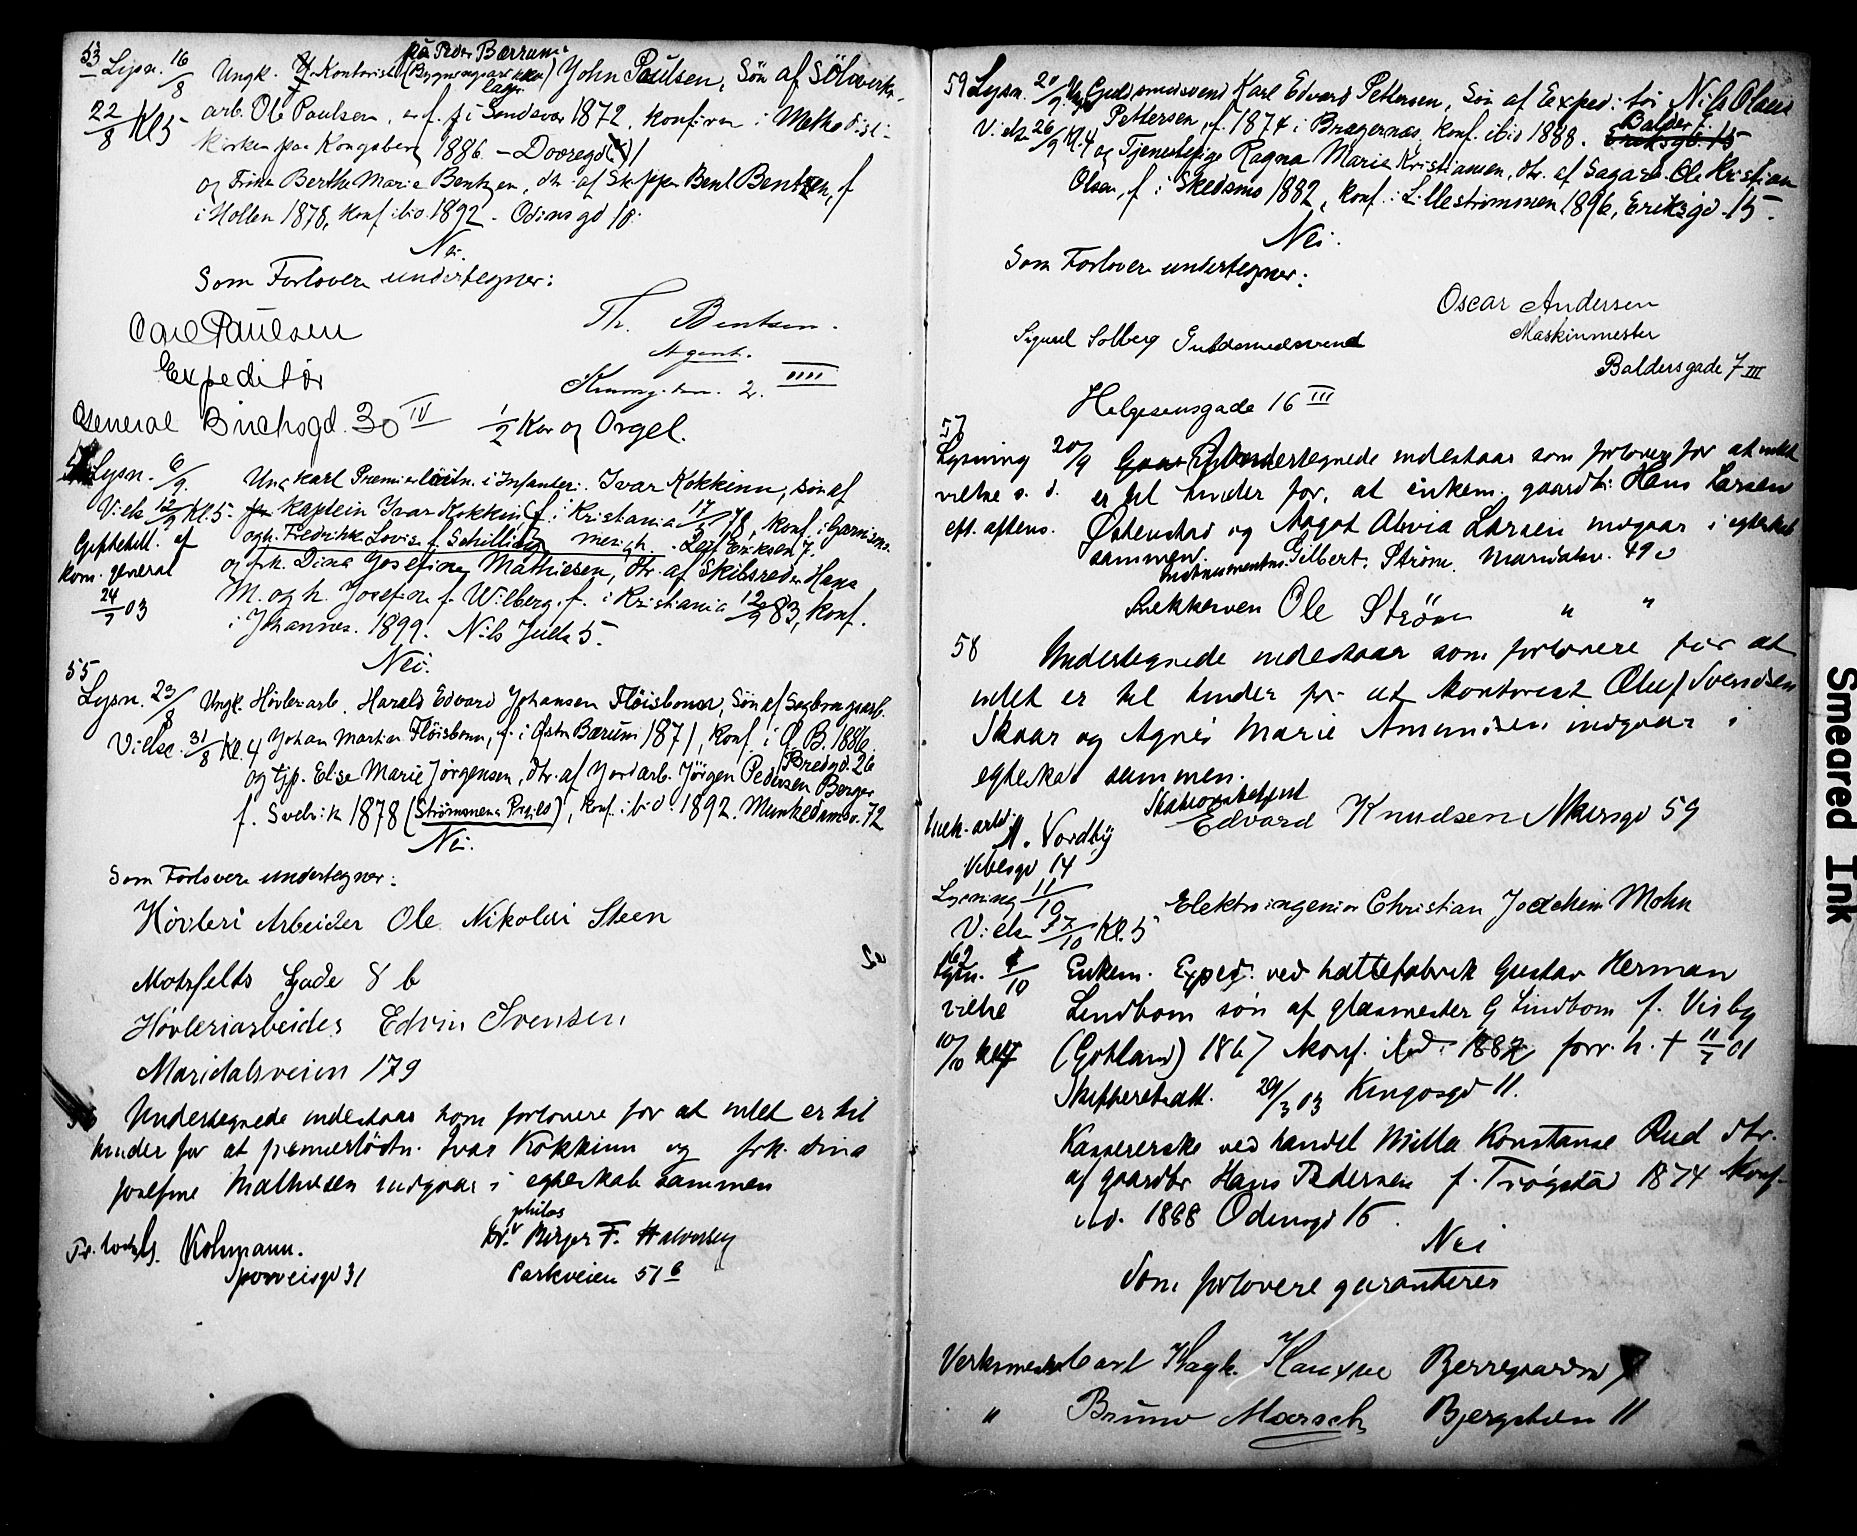 53 Lysn. 16/8 Ungk. Kontorist (Bygningsart lager på Peder Barrums) John Paulsen, Søn af Sölvverks-
22/8 Kl 5 arb. Ole Paulsen, f. i Sandsvær 1872, konfirm. i Methodist-
kirken paa Kongsberg 1886 - Dovregd
og Frøken Berthe Marie Bentzen, dtr. af Skipper Bent Bentzen, f
i Hollen 1878, konf. ibid. 1892 - Odinsgd 18.
Nei.
Som Forlovere undertegner:
Carl Paulsen
Expeditör
General Birchsgd. 30 IV
Th. Bentsen.
Agent.
2. IIII
1/2 Kor og Orgel.
Lysn. 6/9. Ungkarl Premierlöitn. i Infanteri. Ivar Kokkinn, søn af
Vielse 12/9 Kl. 5 - Kaptein Ivar Kokkin, f. i Kristiania 17/5 78, konf. i Garnisons.
Giftetill. af og h. Fredrikke Lovise f. Schilling menigh. Leif Eriksen 7.
kom. general og frk. Dina Josefine Mathiesen, dtr. af Skibsreder Hans
24/7 03 M. og h. Josefine f. Wilberg. f. i Kristiania 12/9 83, konf.
i Johannes. 1899. Nils Juels 5.
Nei.
55
Lysn. 23/8 Ungk. Høvleriarb. Harald Edvard Johansen Flöisbonn, Søn af Sagbrugsarb.
Vielse. 31/8 Kl. 4 Johan Martin Flöisbonn, f. i Østre Bærum 1871, konf. i Ø. B. 1886.
Bredgd. 26
og tjp. Elise Marie Jörgensen, dtr. af Jordarb. Jörgen Pedersen Berger
f. Svelvik 1878 (Strømmens Prgjeld), konf. ibid. 1892. Munkedamsv. 72
Nei.
Som Forlovere undertegner:
Hövleri Arbeider Ole Nikolai Steen
Motzfelds Gade 8 b
Hövleriarbeider Edvin Svensen
Maridalsveien 179
56 Undertegnede indestaar som forlovere for at intet er til
hinder for at premierlødtn. Ivar Kokkinn og frk. Dina
Josefine Mathiesen indgaar i egteskab sammen
Kolmann.
Sporveisgd 31
Dr. philos Birger F. Halvorsen
Parkveien 51 b
59 Lysn. 20/9 Ungk. Guldsmedsvend Karl Edvard Pettersen, Søn af Expeditör Nils Olaus
Vielse 26/9 Kl. 4 Pettersen, f. 1874 i Bragernæs, konf. ibid 1888. Baldersg 7. Eriksgd. 15
og Tjenestepige Ragna Marie Kristiansen, dtr. af Sagarb. Ole Kristian
Olsen, f. i Skedsmo 1882, konf. i Lillestrømmen 1896, Eriksgd. 15.
Nei.
Som Forlovere undertegner:
Oscar Andersen
Maskinmester
Baldersgade 7 III
Sigurd Solberg Guldsmedsvend
Helgesensgade 16 III
57
Lysning 20/9 Undertegnede indestaar som forlovere for at intet
vielse s. d. er til hinder for, at enkem. gaardbr. Hans Larsen
eft. aftens. Østenstad og Aagot Alvia Larsen indgaar i egteskab
sammen.
Instrumentm. Gilbert Strøm. Maridalsv. 49 c
Snekkersven Ole Strøm " "
58 Undertegnede indestaar som forlovere for at
intet er til hinder for at Kontorist Oluf Svendsen
Skaar og Agnes Marie Amundsen indgaar i
egteskab sammen.
Stationsbetjent
Edvard Knudsen Akersgd 59
A. Nordby
Vibesgd 14
Lysning 11/10 Elektroingeniør Christian Joachim Mohn
Vielse 17/10 Kl. 5
Lysn. 4/10 Enkem. Exped. ved hattefabrik Gustav Herman
vielse Lindbom søn af glasmester G Lindbom f. Visby
10/10 (Gotland) 1867 Konf. ibd. 1882, forr. h. + 11/7 01
Skifteretsatt. 20/3 03 Kingosgd 11.
Kassererske ved handel Milla Konstanse Rud dtr.
af gaardbr Hans Pedersen f. Trögstad 1874 Konf.
ibd. 1888 Odinsgd 15.
Nei
Som forlovere garanteres
Verksmester Carl
" Bruno Marsch Bjergstien 11
Smeared Ink